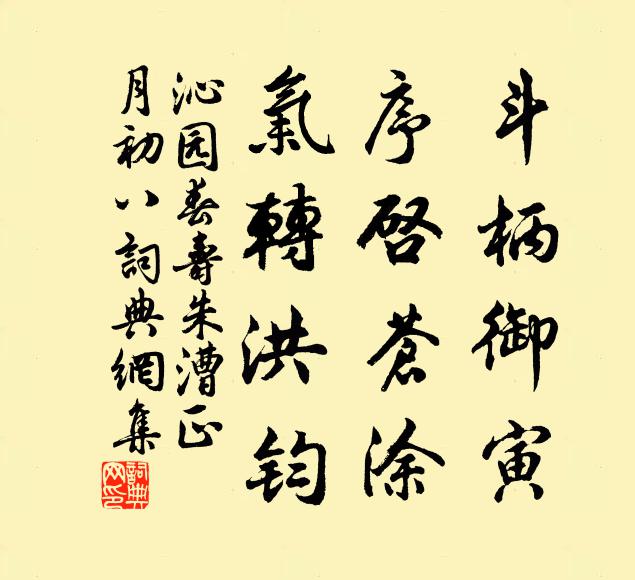 斗柄御寅
序啓蒼涂
氣轉洪鈞
沁园春壽朱漕正
月初八詞典網集
詞典网印